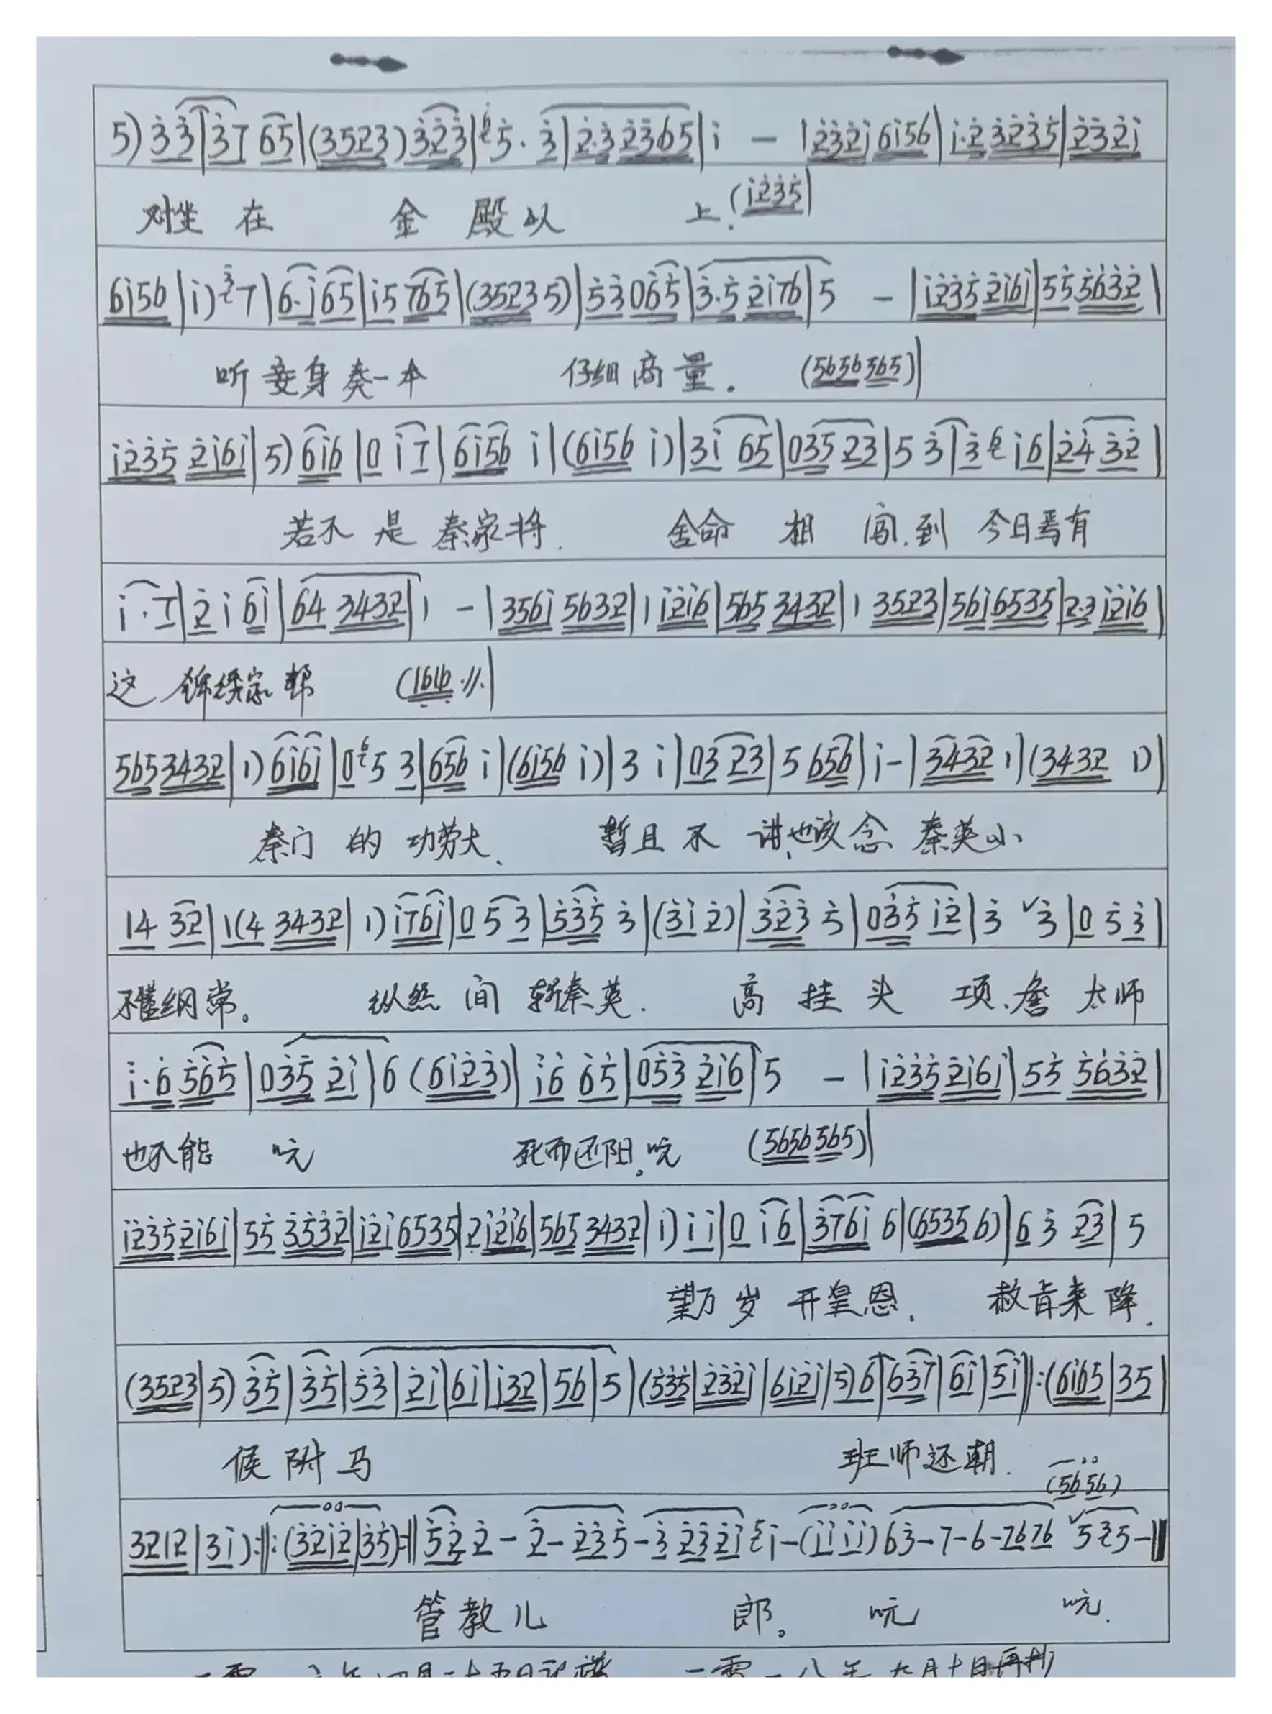 5) 3̇3̇|3̇7 65|(3523) 3̇2̇3̇|5̇·3̇|2̇·3̇ 2̇3̇65|i̇ - |2̇3̇2̇i̇ 6i̇56|i̇·2̇ 3̇2̇3̇5̇|2̇3̇2̇i̇
对坐 在 金 殿以 上.(i̇2̇3̇5̇|
6i̇56|i̇) 7|6·i̇ 65|i̇5 765|(3523 5)|5̇3̇ 065|3̇·5̇ 2̇i̇76|5 - |i̇2̇3̇5̇ 2̇i̇6i̇|5̇5̇ 5̇6̇3̇2̇|
听妾身奏一本 仔细商量. (5656 565)|
i̇2̇3̇5̇ 2̇i̇6i̇|5) 6i̇6|0 i̇7|6i̇56 i̇|(6i̇56 i̇)|3i̇ 65|035 23|5 3̇|3̇ i̇6|2̇4̇ 3̇2̇|
若不 是 秦家将. 舍命 相 闯.到 今日焉有
i̇·7|2̇ i̇ 6i̇|64 3432|1 - |356i̇ 5632|1 i̇2̇i̇6|565 3432|1 3523|56i̇6535|2·3 i̇2̇i̇6|
这 锦绣家邦 (1616 ·//·|
565 3432|1) 6i̇6i̇|0 5 3|656 i̇|(6i̇56 i̇)|3 i̇|03 23|5 656|i̇-|3432 1|(3432 1)|
秦门 的 功劳大. 暂且 不 讲.也该念 秦英小
14 32|1(4 3432|1) i̇76i̇|0 5 3|5̇3̇5̇ 3̇|(3̇i̇ 2̇)|3̇2̇3̇ 5̇|03̇5̇ i̇2̇|3̇ ˅3̇|0 5̇ 3̇|
不懂纲常。 纵然 间 斩秦英. 高 挂 头 项.詹 太师
i̇·6 5̇6̇5̇|03̇5̇ 2̇i̇|6 (6i̇2̇3̇)|i̇6 65|05̇3̇ 2̇i̇6|5 - |i̇2̇3̇5̇ 2̇i̇6i̇|5̇5̇ 5̇6̇3̇2̇|
也不能 吭 死而还阳.吭 (5656 565)|
i̇2̇3̇5̇ 2̇i̇6i̇|5̇5̇ 3̇5̇3̇2̇|i̇2̇i̇ 6535|2 i̇2̇i̇6|565 3432|1) i̇ i̇|0 i̇6|3̇76i̇ 6|(6535 6)|6 3̇ 2̇3̇|5
望万 岁 开皇恩. 赦旨来 降.
(3523|5) 3̇5̇|3̇5̇|5̇3̇|2̇i̇|6i̇|i̇32|56|5|(5̇3̇5̇|2̇3̇2̇i̇|6i̇2̇i̇|5) 6|63̇7|6i̇|5i̇‖:(6i̇65|35|
候 附 马 班师还朝. (5656)
3212|3 i̇):‖:(3̇2̇i̇2̇|3̇5̇):‖5̇2̇ 2̇ - 2̇ - 2̇3̇5̇ - 3̇ 2̇3̇2̇i̇ i̇-(i̇i̇ i̇i̇) 63̇-7-6-7676 ˅5 2̇5-‖
管教儿 郎。 吭 吭.